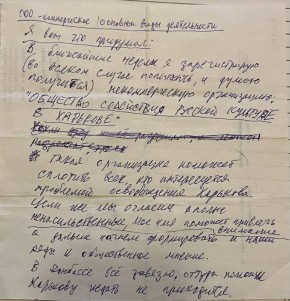 ООО - коммерческое (основной виды деятельности
Я вот что придумал:
В ближайшие недели я зарегистрирую
(во всяком случае попытаюсь, и думаю
получится) некоммерческую организацию:
"ОБЩЕСТВО СОДЕЙСТВИЯ РУССКОЙ КУЛЬТУРЕ
В ХАРЬКОВЕ"
Такая организация поможет
сплотить всех, кто интересуется
проблемой освобождения Харькова
Если же мы согласи
ненасильственные, поможет привлечь
внимание
а дальше начнем формировать и наши
ряды и общественное мнение.
В Донбассе всё завязло, оттуда помощи
Харькову ждать не приходится.